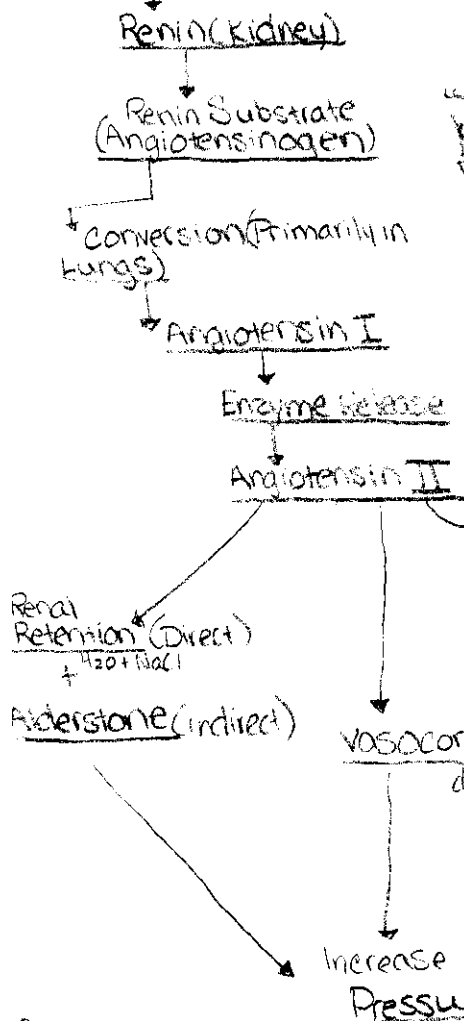 Renin (Kidney)
Renin Substrate
(Angiotensinogen)
Conversion (Primarily in
Lungs)
Angiotensin I
Enzyme Release
Angiotensin II
Renal
Retention (Direct)
+ H2O + NaCl
Alderstone (indirect)
Vasocon
d
Increase
Pressu